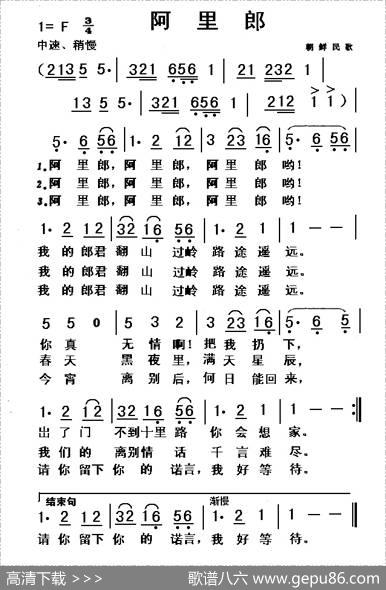 阿里郎
1=F 3/4
中速、稍慢
朝鲜民歌
(2135 5· | 321 6561 | 21 232 1 |
135 5· | 321 6561 | 212 1 1)|
5· 6 56 | 1· 2 12 | 3 2321 6 | 5· 6 56 |
1.阿里郎,阿里郎,阿里郎哟!
2.阿里郎,阿里郎,阿里郎哟!
3.阿里郎,阿里郎,阿里郎哟!
1· 2 12 | 32 16 56 | 1· 2 1 | 1 - - |
我的郎君翻山过岭路途遥远。
我的郎君翻山过岭路途遥远。
我的郎君翻山过岭路途遥远。
5 5 0 | 5 3 2 | 3 2316 | 5· 6 5 |
你真无情啊!把我扔下,
春天黑夜里,满天星辰,
今宵离别后,何日能回来,
1· 2 12 | 32 16 56 | 1· 2 1 | 1 - :|
出了门不到十里路你会想家。
我们的离别情话千言难尽。
请你留下你的诺言,我好等待。
结束句 渐慢
1· 2 12 | 32 16 56 | 1· 2 1 | 1 - - ‖
请你留下你的诺言,我好等待。
高清下载 >>>
歌谱八六 www.gepu86.com